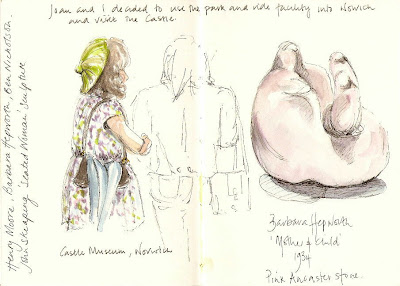 Joan and I decided to use the park and ride facility into Norwich
and visit the Castle.
Henry Moore, Barbara Hepworth, Ben Nicholson.
John Skeaping 'Seated Woman' Sculpture
Castle Museum, Norwich
Barbara Hepworth
'Mother & Child
1934
Pink Ancaster stone.